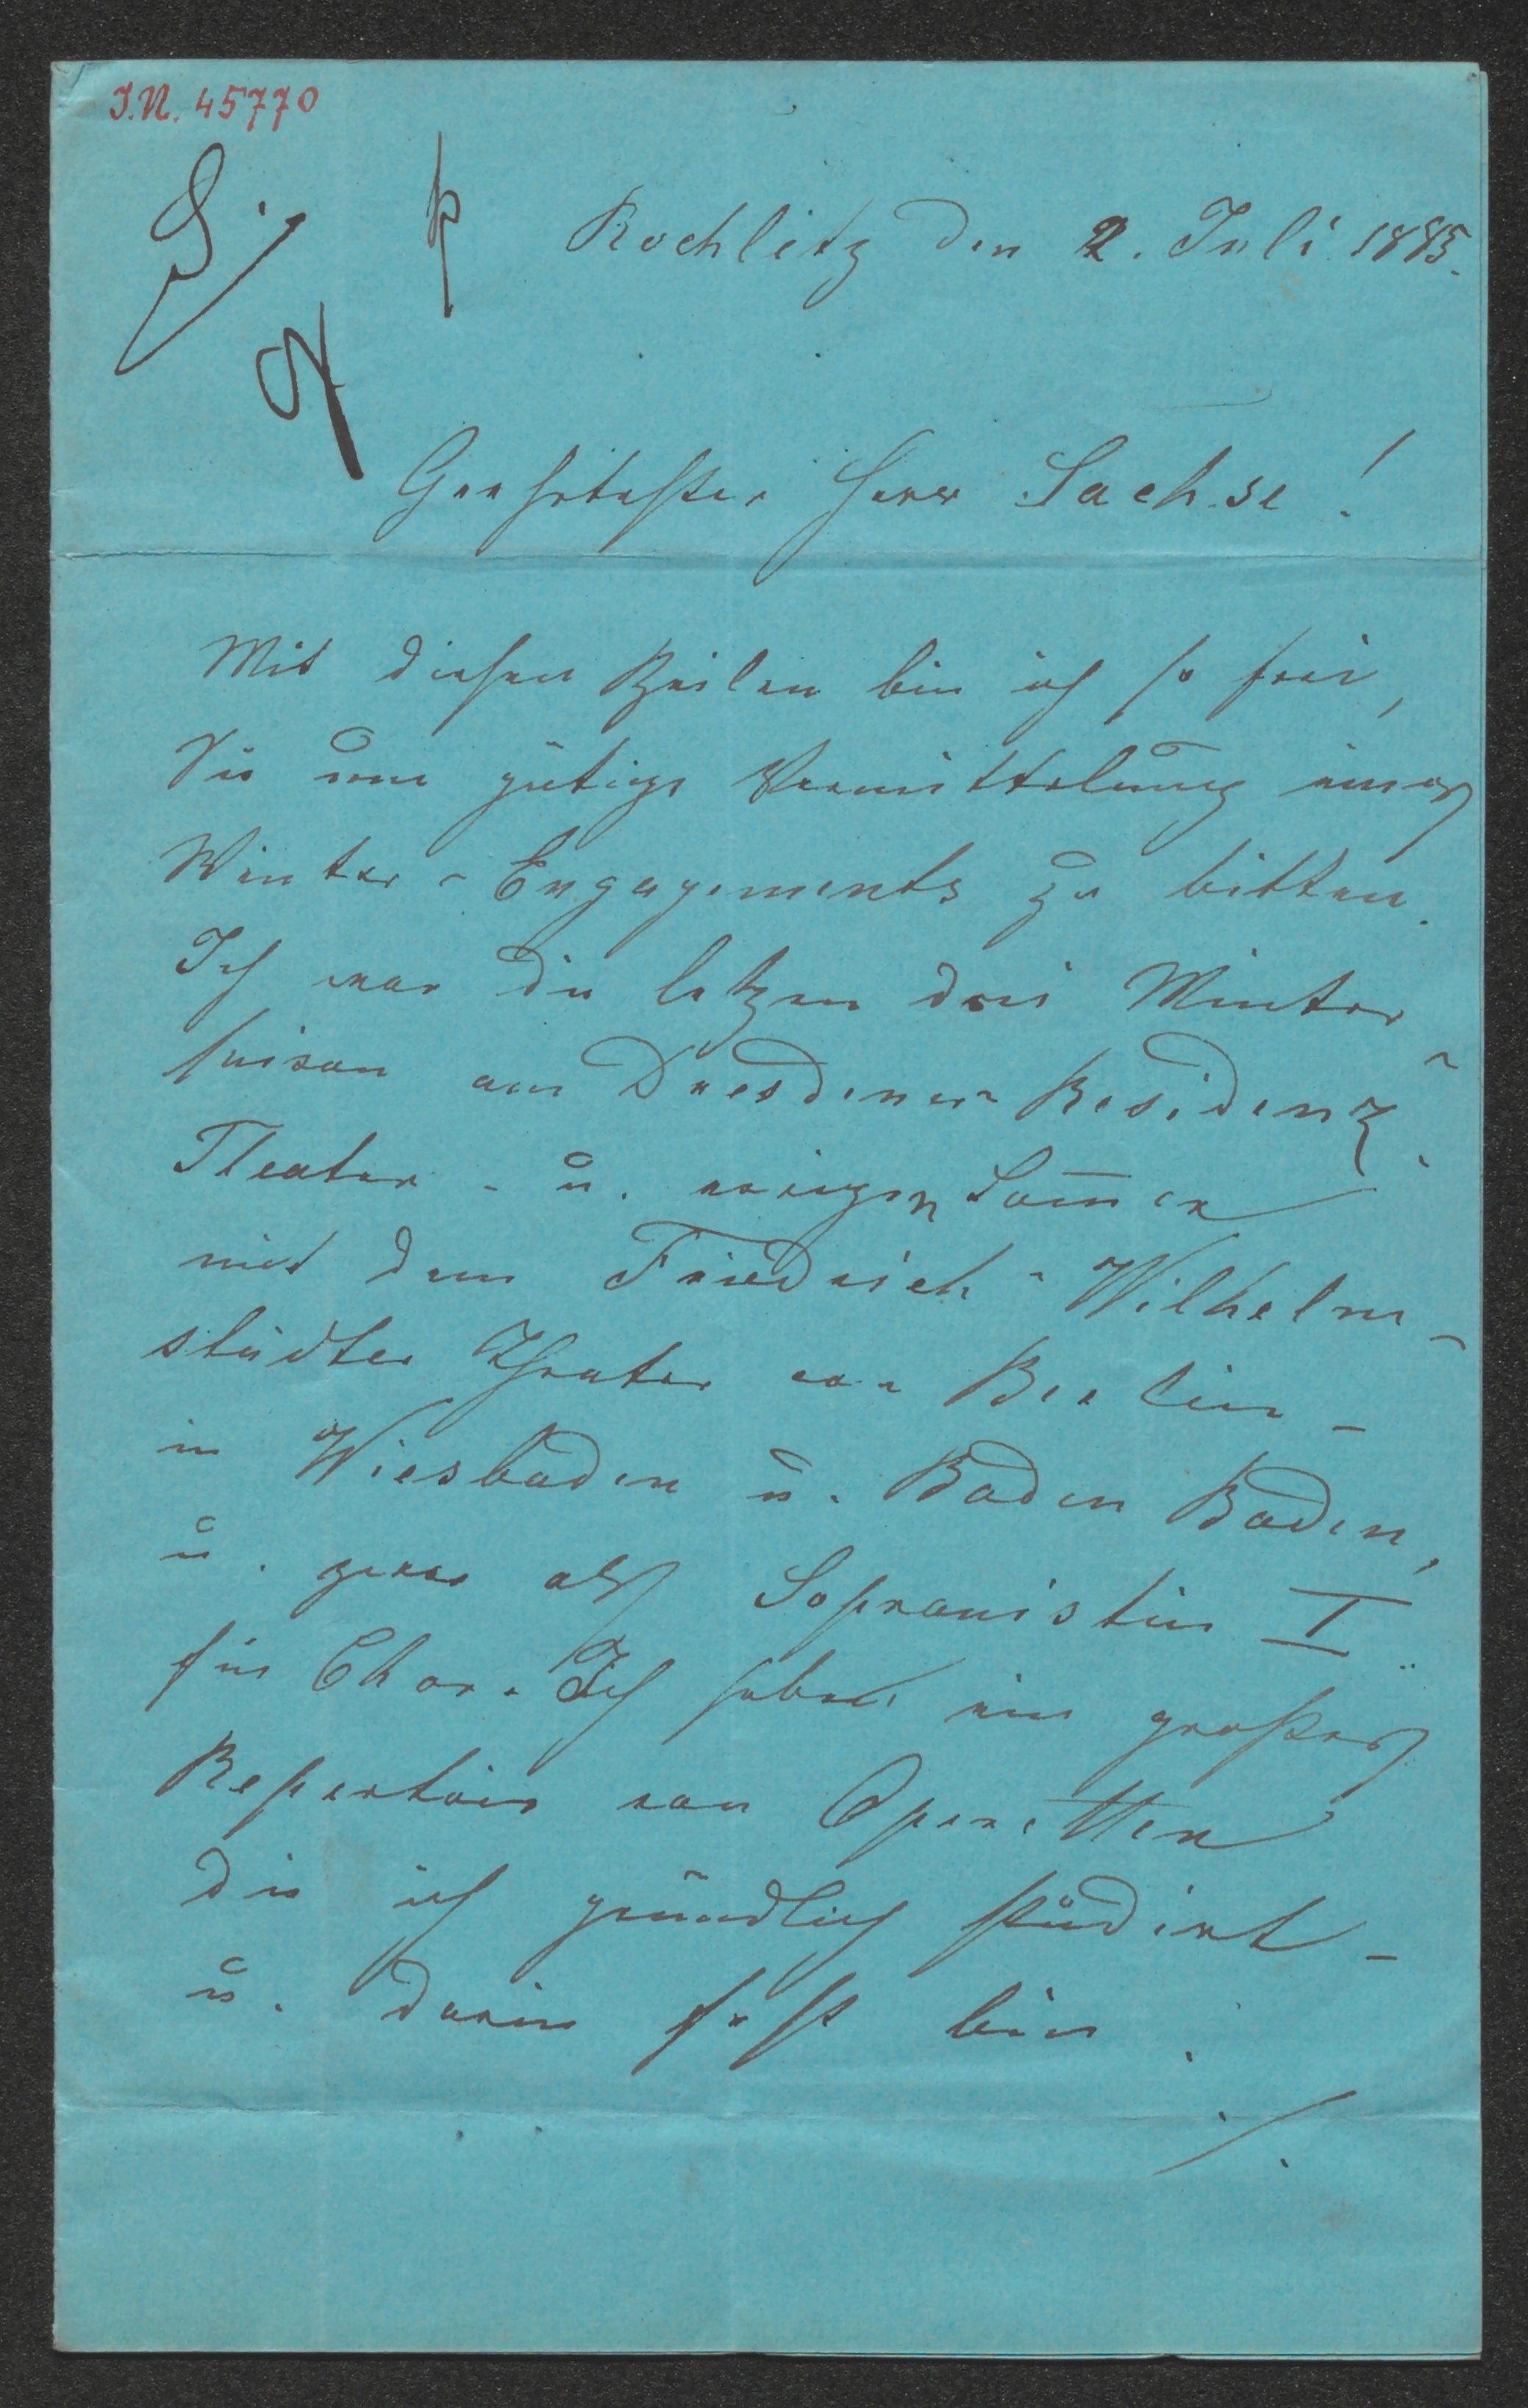 I.N. 45770
Rochlitz den 2. Juli 1885.
Geehrtester Herr Sachse!
Mit diesen Zeilen bin ich so frei,
Sie um gütige Vermittelung eines
Winter-Engagements zu bitten.
Ich war die letzen drei Winter
saison am Dresdener Residenz-
Theater - u. vorigen Sommer
mit dem Friedrich-Wilhelm-
städter Theater von Berlin -
in Wiesbaden u. Baden Baden,
u. zwar als Sopranistin I
für Chor. Ich habe ein großes
Repertoir von Operetten
die ich gründlich studirt -
u. darin fest bin.
/.